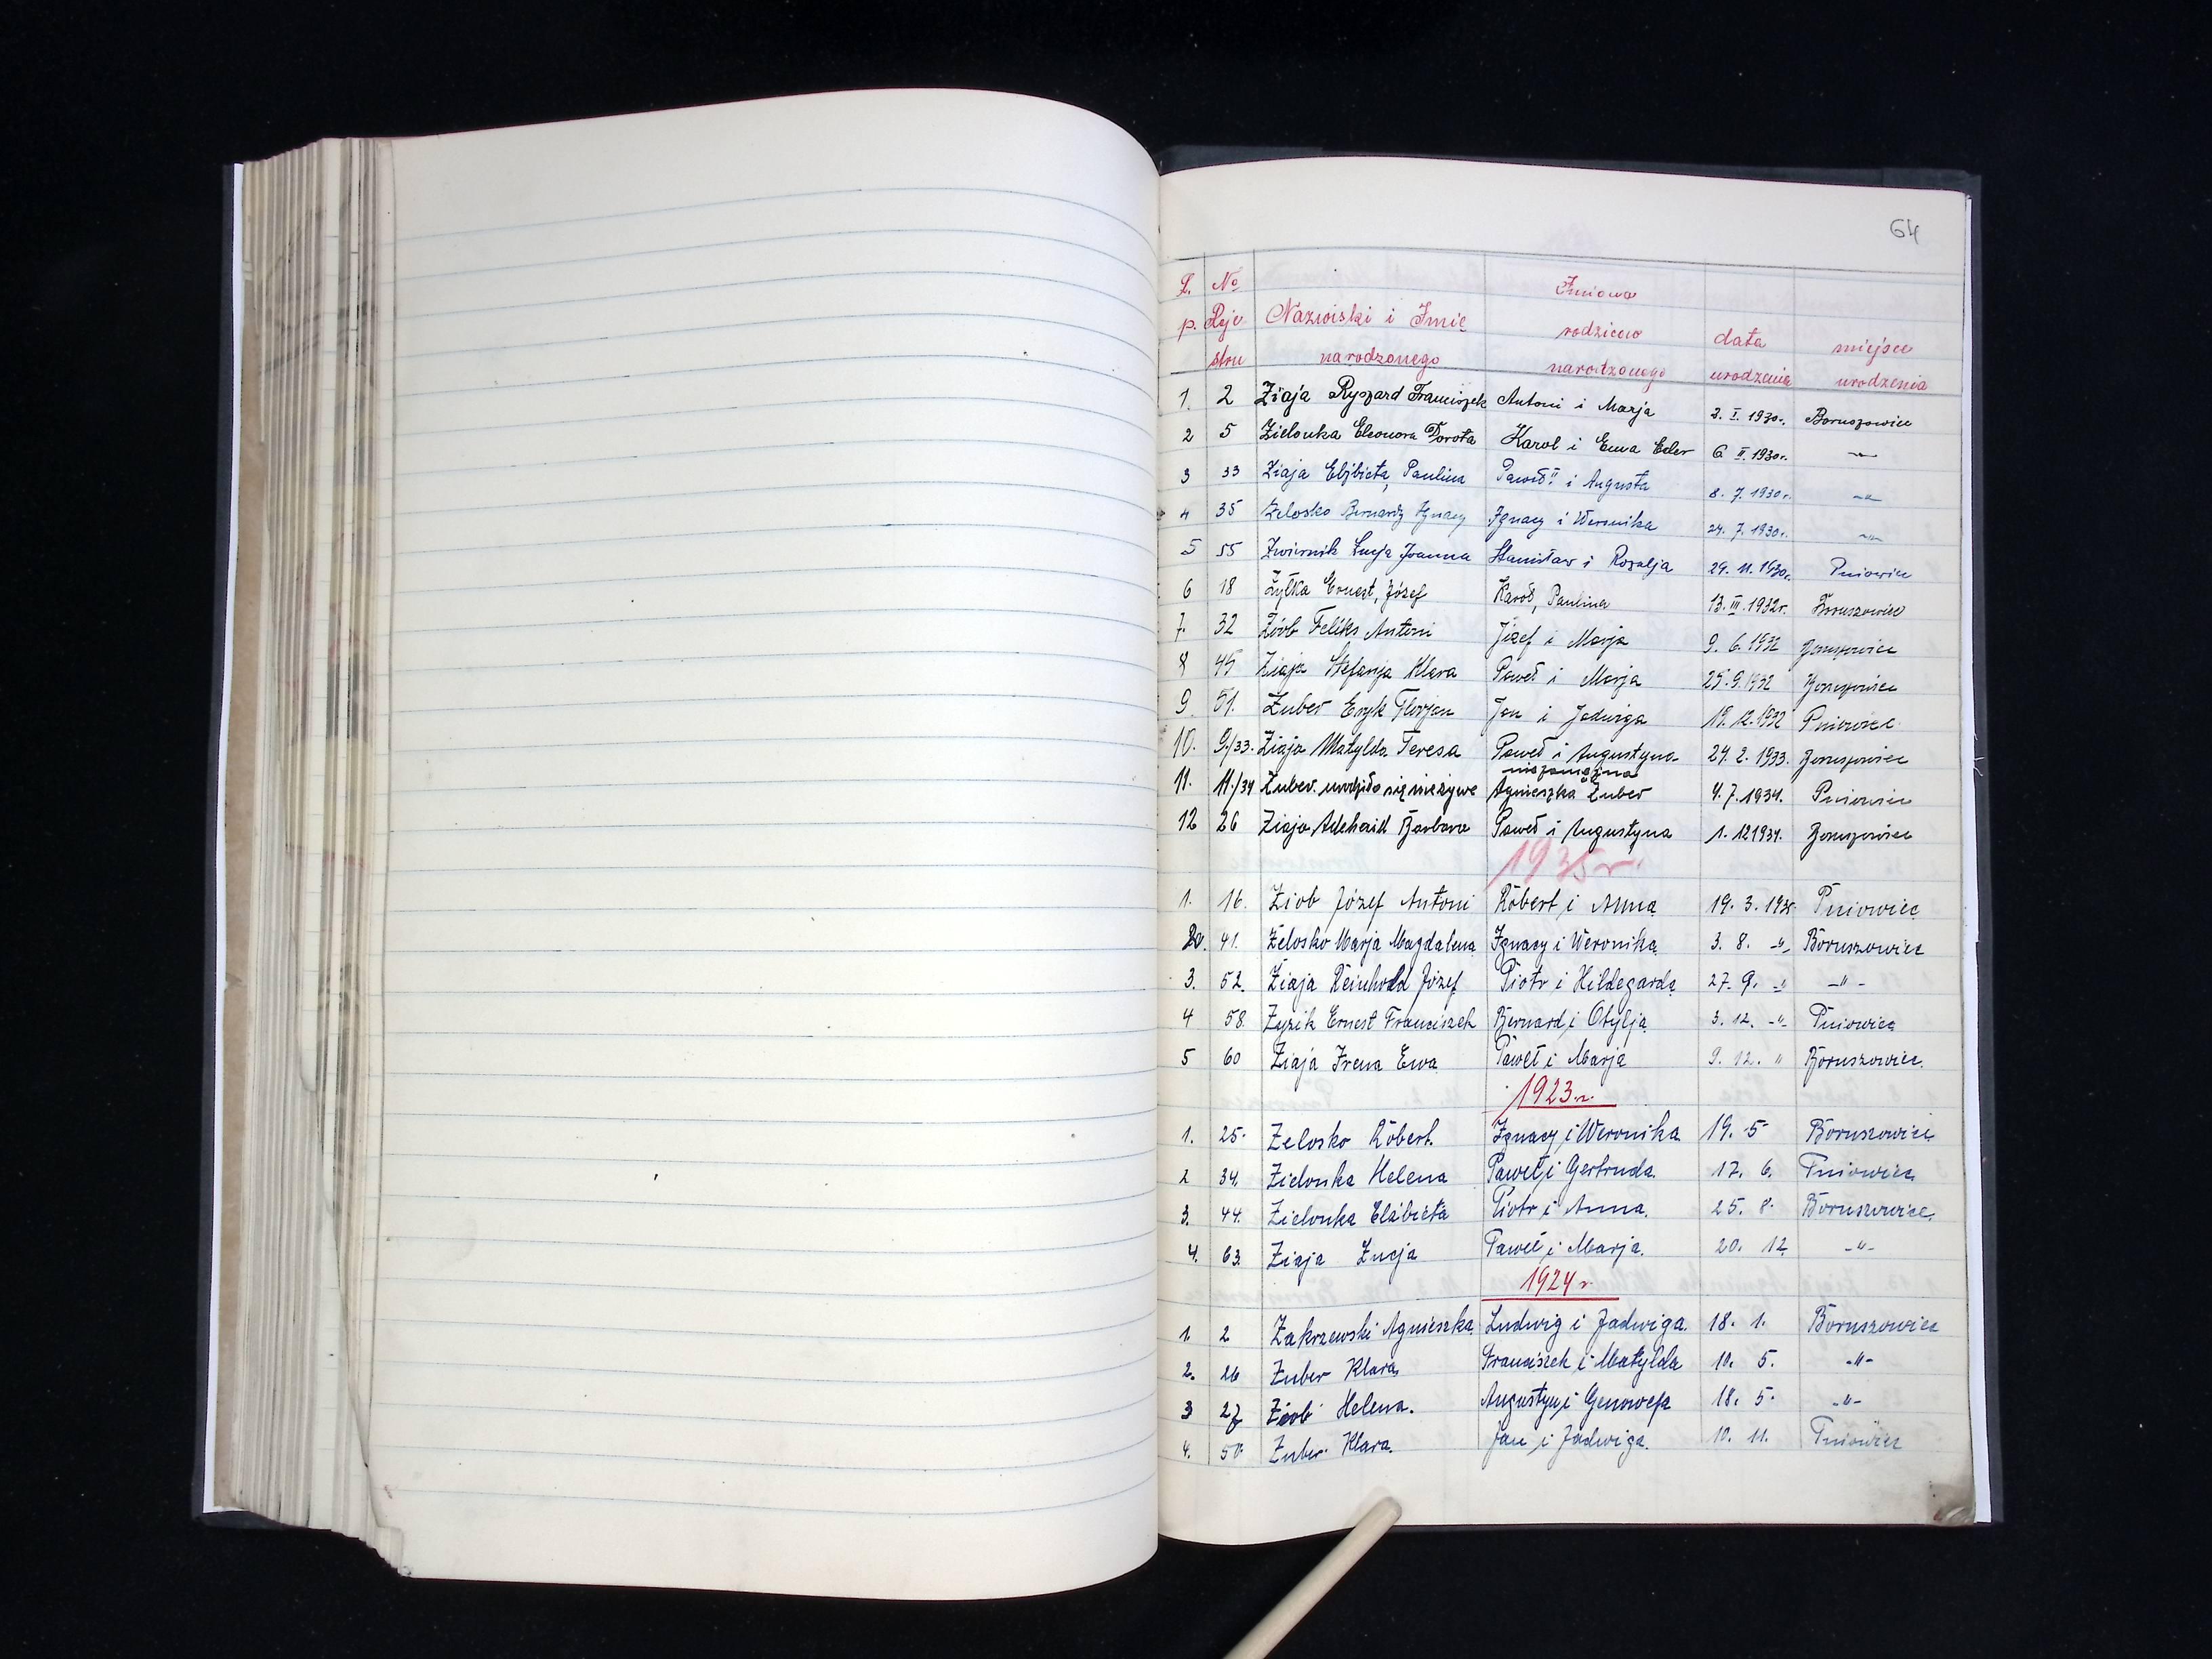 64
L. No Imiona
p. Reje Nazwiski i Imię rodziców data miejsce
stru narodzonego narodzonego urodzenia urodzenia
1. 2 Ziaja Ryszard Franciszek Antoni i Marja 2. I. 1930r. Boruszowice
2 5 Zielonka Eleonora Dorota Karol i Ewa 6 II. 1930r. -"-
3 33 Ziaja Elżbieta, Paulina Paweł II i Augusta 8. 7. 1930r. -"-
4 35 Zelosko Bernard Ignacy Ignacy i Weronika 24. 7. 1930r. -"-
5 55 Zwiernik Łucja Joanna Stanisław i Rozalja 29. 11. 1930r. Pniowiec
6 18 Żyłka Ernest, Józef Karol, Paulina 13. III. 1932r. Boruszowice
7. 32 Ziob Feliks Antoni Józef i Marja 9. 6. 1932 Boruszowice
8 45 Ziaja Stefanja Klara Paweł i Marja 25. 9. 1932 Boruszowice
9. 51. Zuber Eryk Florjan Jan i Jadwiga 19. 12. 1932 Pniowiec
10. 9./33. Ziaja Matylda Teresa Paweł i Augustyna 24. 2. 1933. Boruszowice
niezamężna
11. 11./34 Zuber urodziło się nieżywe Agnieszka Zuber 4. 7. 1934. Pniowiec
12 26 Ziaja Adelhaid Barbara Paweł i Augustyna 1. 12 1934. Boruszowice
1935 r.
1. 16. Ziob Józef Antoni Robert i Anna 19. 3. 1935 Pniowiec
2. 41. Zelosko Marja Magdalena Ignacy i Weronika 3. 8. -"- Boruszowice
3. 52. Ziaja Reinhold Józef Piotr i Hildegarda 27. 9. -"- -"-
4 58. Zyzik Ernest Franciszek Bernard i Otylja 3. 12. -"- Pniowiec
5 60 Ziaja Irena Ewa Paweł i Marja 9. 12. " Boruszowice.
1923 r.
1. 25. Zelosko Robert. Ignacy i Weronika 19. 5 Boruszowice
2 34. Zielonka Helena Paweł i Gertruda. 17. 6. Pniowiec
3. 44. Zielonka Elżbieta Piotr i Anna. 25. 8. Boruszowice.
4. 63. Ziaja Łucja Paweł i Marja. 20. 12 -"-
1924 r.
1. 2 Zakrzewski Agnieszka Ludwig i Jadwiga. 18. 1. Boruszowice
2. 26 Zuber Klara Franciszek i Matylda 10. 5. -"-
3 27 Ziob Helena. Augustyn i Genowefa 18. 5. -"-
4. 50 Zuber Klara. Jan i Jadwiga. 10. 11. Pniowiec